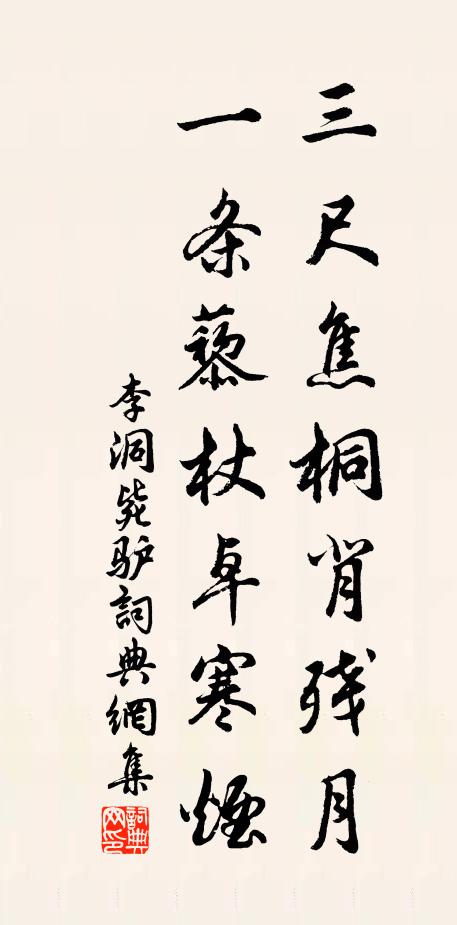 三尺焦桐背残月
一条藜杖卓寒烟
李洞毙驴詞典網集
詞典网印